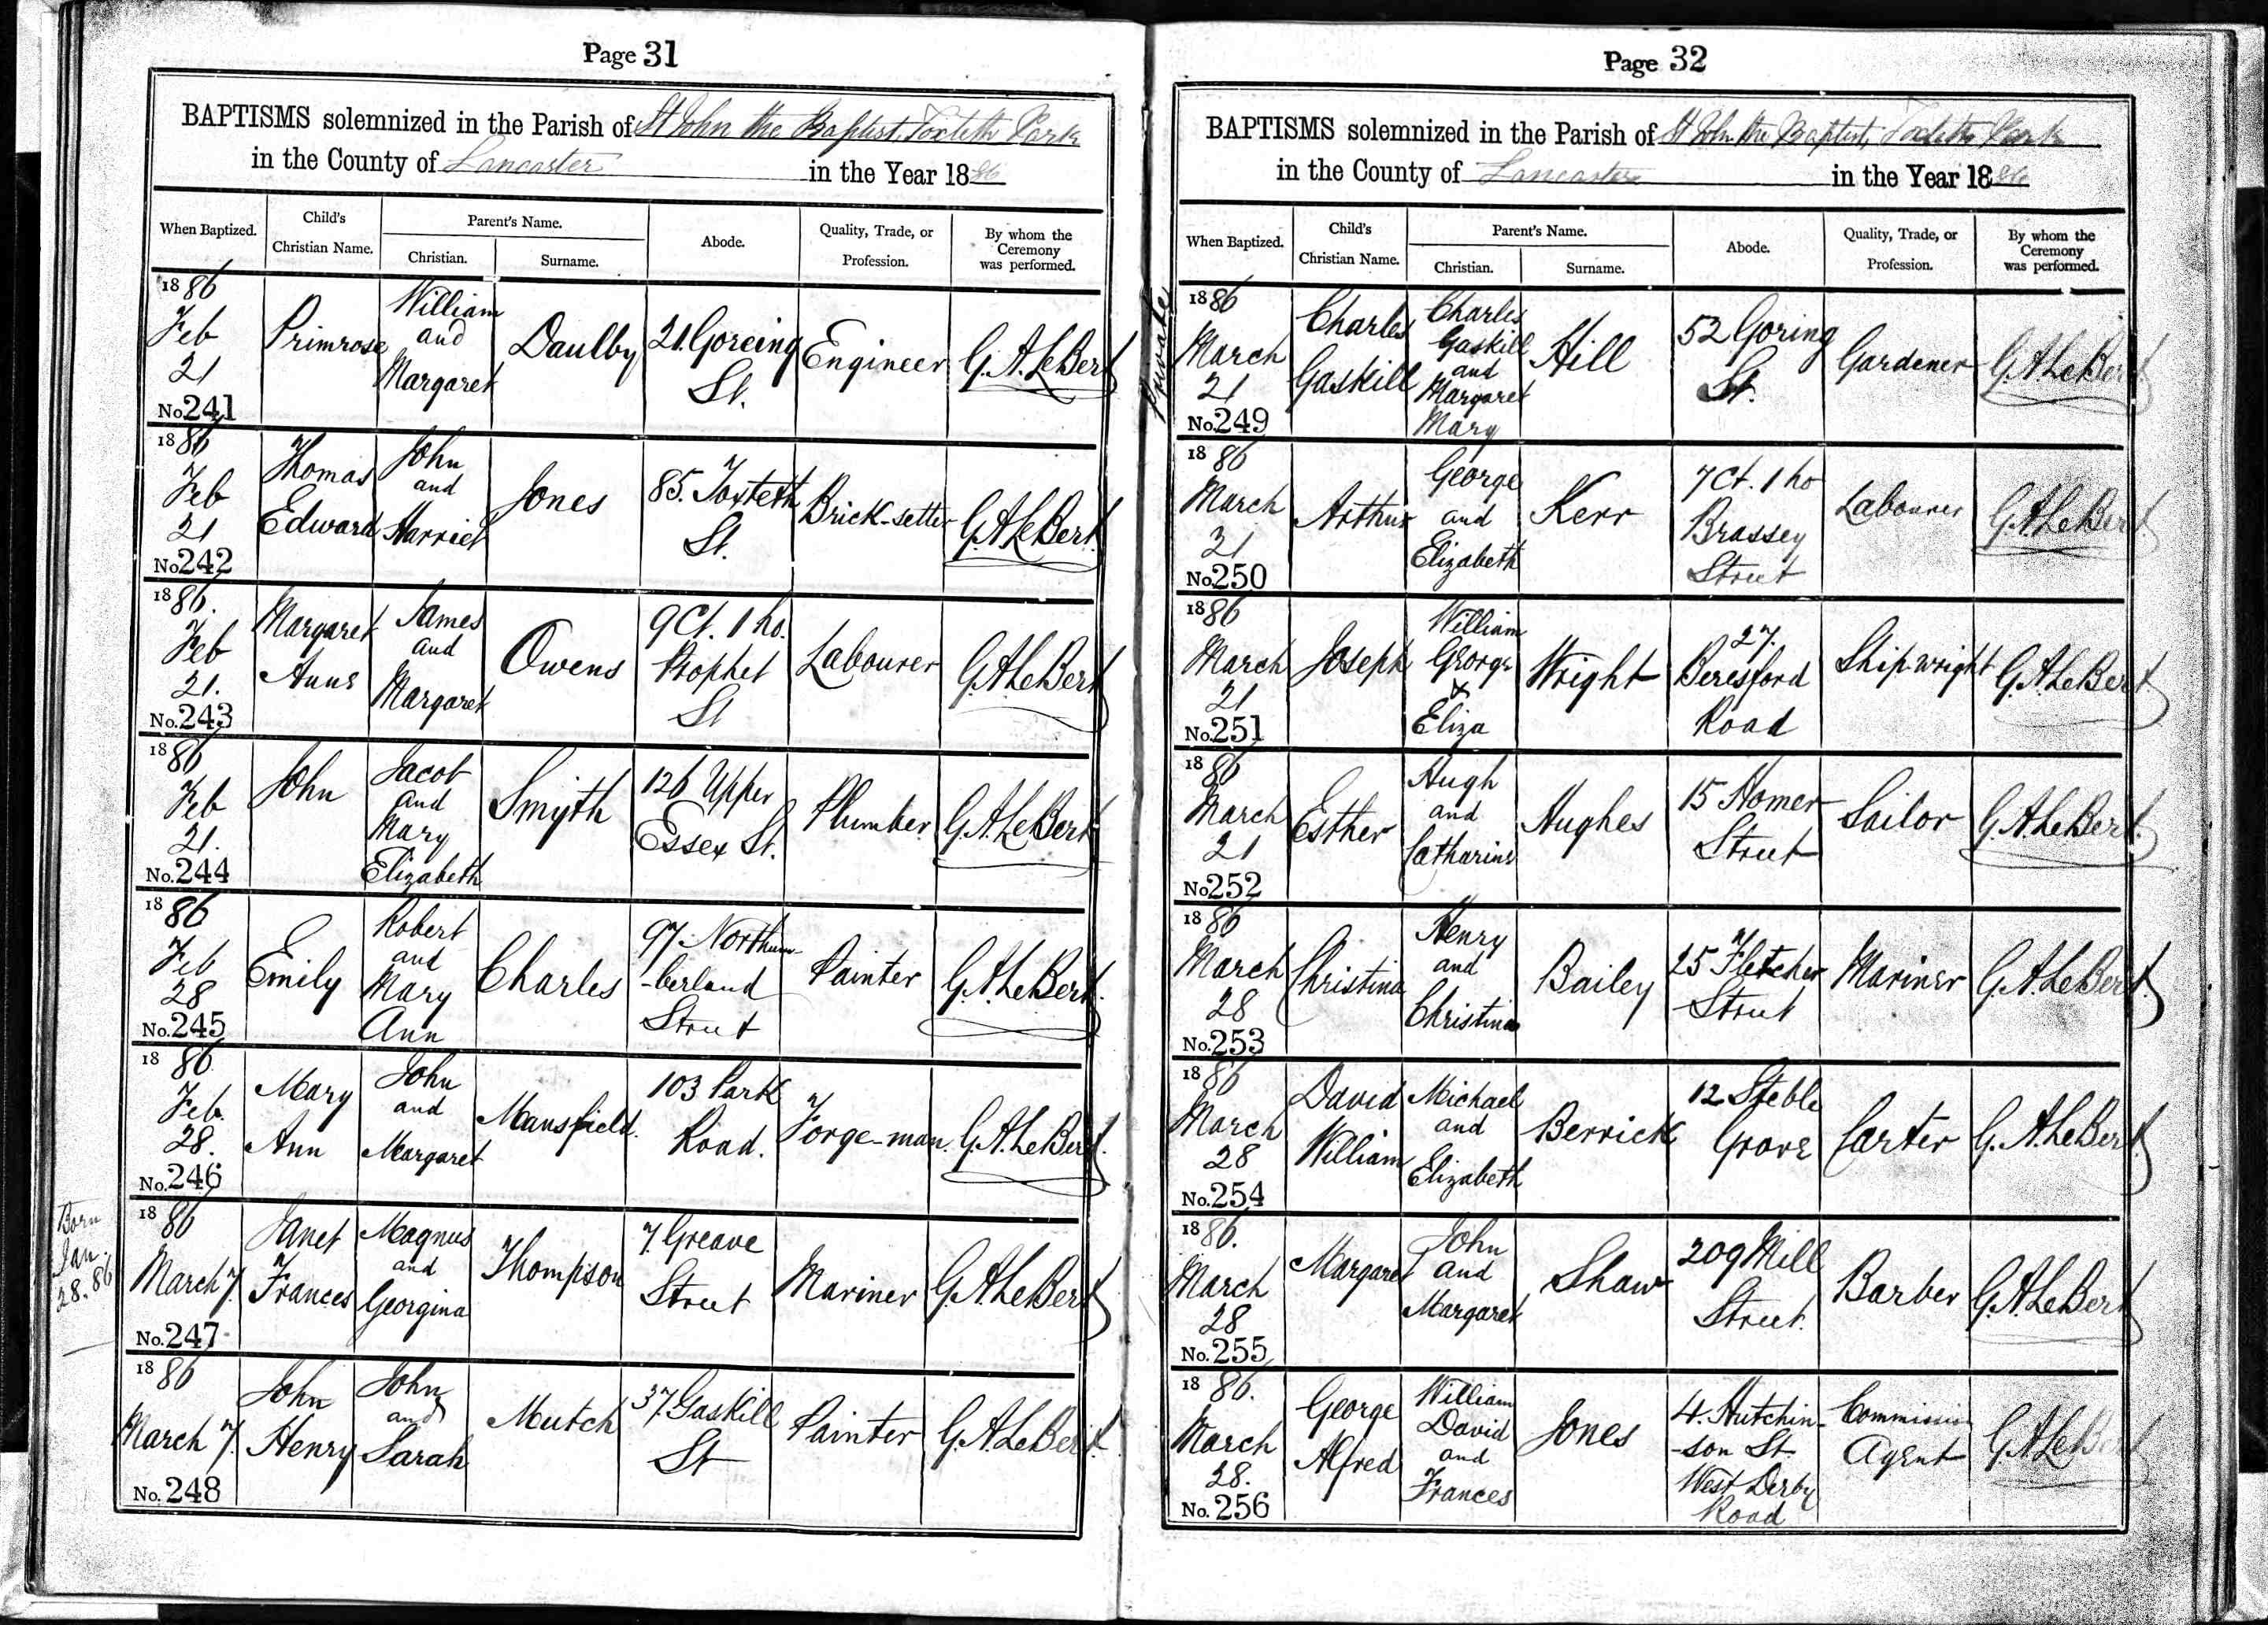 Page 31
BAPTISMS solemnized in the Parish of St John the Baptist, Toxteth Park
in the County of Lancaster in the Year 1886
When Baptized. Child's Christian Name. Parent's Name. Christian. Surname. Abode. Quality, Trade, or Profession. By whom the Ceremony was performed.
1886 Feb 21 No. 241 Primrose William and Margaret Daulby 21. Goreing St. Engineer G.A. LeBert
1886 Feb 21 No. 242 Thomas Edward John and Harriet Jones 85. Toxteth St. Brick-setter G.A. LeBert.
1886. Feb 21. No. 243 Margaret Anne James and Margaret Owens 9 Ct. 1 ho. Prophet St Labourer G.A. LeBert
1886 Feb 21. No. 244 John Jacob and Mary Elizabeth Smyth 126 Upper Essex St. Plumber G.A. LeBert
1886 Feb 28 No. 245 Emily Robert and Mary Ann Charles 97 Northum-berland Street Painter G.A. LeBert.
1886 Feb. 28. No. 246 Mary Ann John and Margaret Mansfield. 103 Park Road. Forge-man. G.A. LeBert.
Born Jan. 28. 86
1886 March 7. No. 247 Janet Frances Magnus and Georgina Thompson 7. Greave Street Mariner G.A. LeBert
1886 March 7. No. 248 John Henry John and Sarah Mutch 37. Gaskill St Painter G.A. LeBert.
Page 32
BAPTISMS solemnized in the Parish of St John the Baptist, Toxteth Park
in the County of Lancaster in the Year 1886
When Baptized. Child's Christian Name. Parent's Name. Christian. Surname. Abode. Quality, Trade, or Profession. By whom the Ceremony was performed.
Private
1886 March 21 No. 249 Charles Gaskill Charles Gaskill and Margaret Mary Hill 52 Goring St. Gardener G.A. LeBert.
1886 March 21 No. 250 Arthur George and Elizabeth Kerr 7 Ct. 1 ho Brassey Street Labourer G.A. LeBert.
1886 March 21 No. 251 Joseph William George & Eliza Wright 27. Beresford Road Shipwright G.A. LeBert
1886 March 21 No. 252 Esther Hugh and Catharine Hughes 15 Homer Street Sailor G.A. LeBert.
1886 March 28 No. 253 Christina Henry and Christina Bailey 25 Fletcher Street Mariner G.A. LeBert.
1886 March 28 No. 254 David William Michael and Elizabeth Berrick 12 Steble Grove Carter G.A. LeBert.
1886. March 28 No. 255 Margaret John and Margaret Shaw 209 Mill Street. Barber G.A. LeBert
1886. March 28. No. 256 George Alfred William David and Frances Jones 4. Hutchin-son St West Derby Road Commission Agent G.A. LeBert